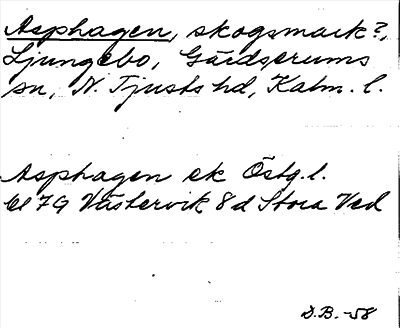 Asphagen, skogsmark?,
Ljungebo, Gärdserums
sn, N. Tjusts hd, Kalm. l.
Asphagen ek Östg. l.
bl 79 Västervik 8d Stora Ved
S.B. -58